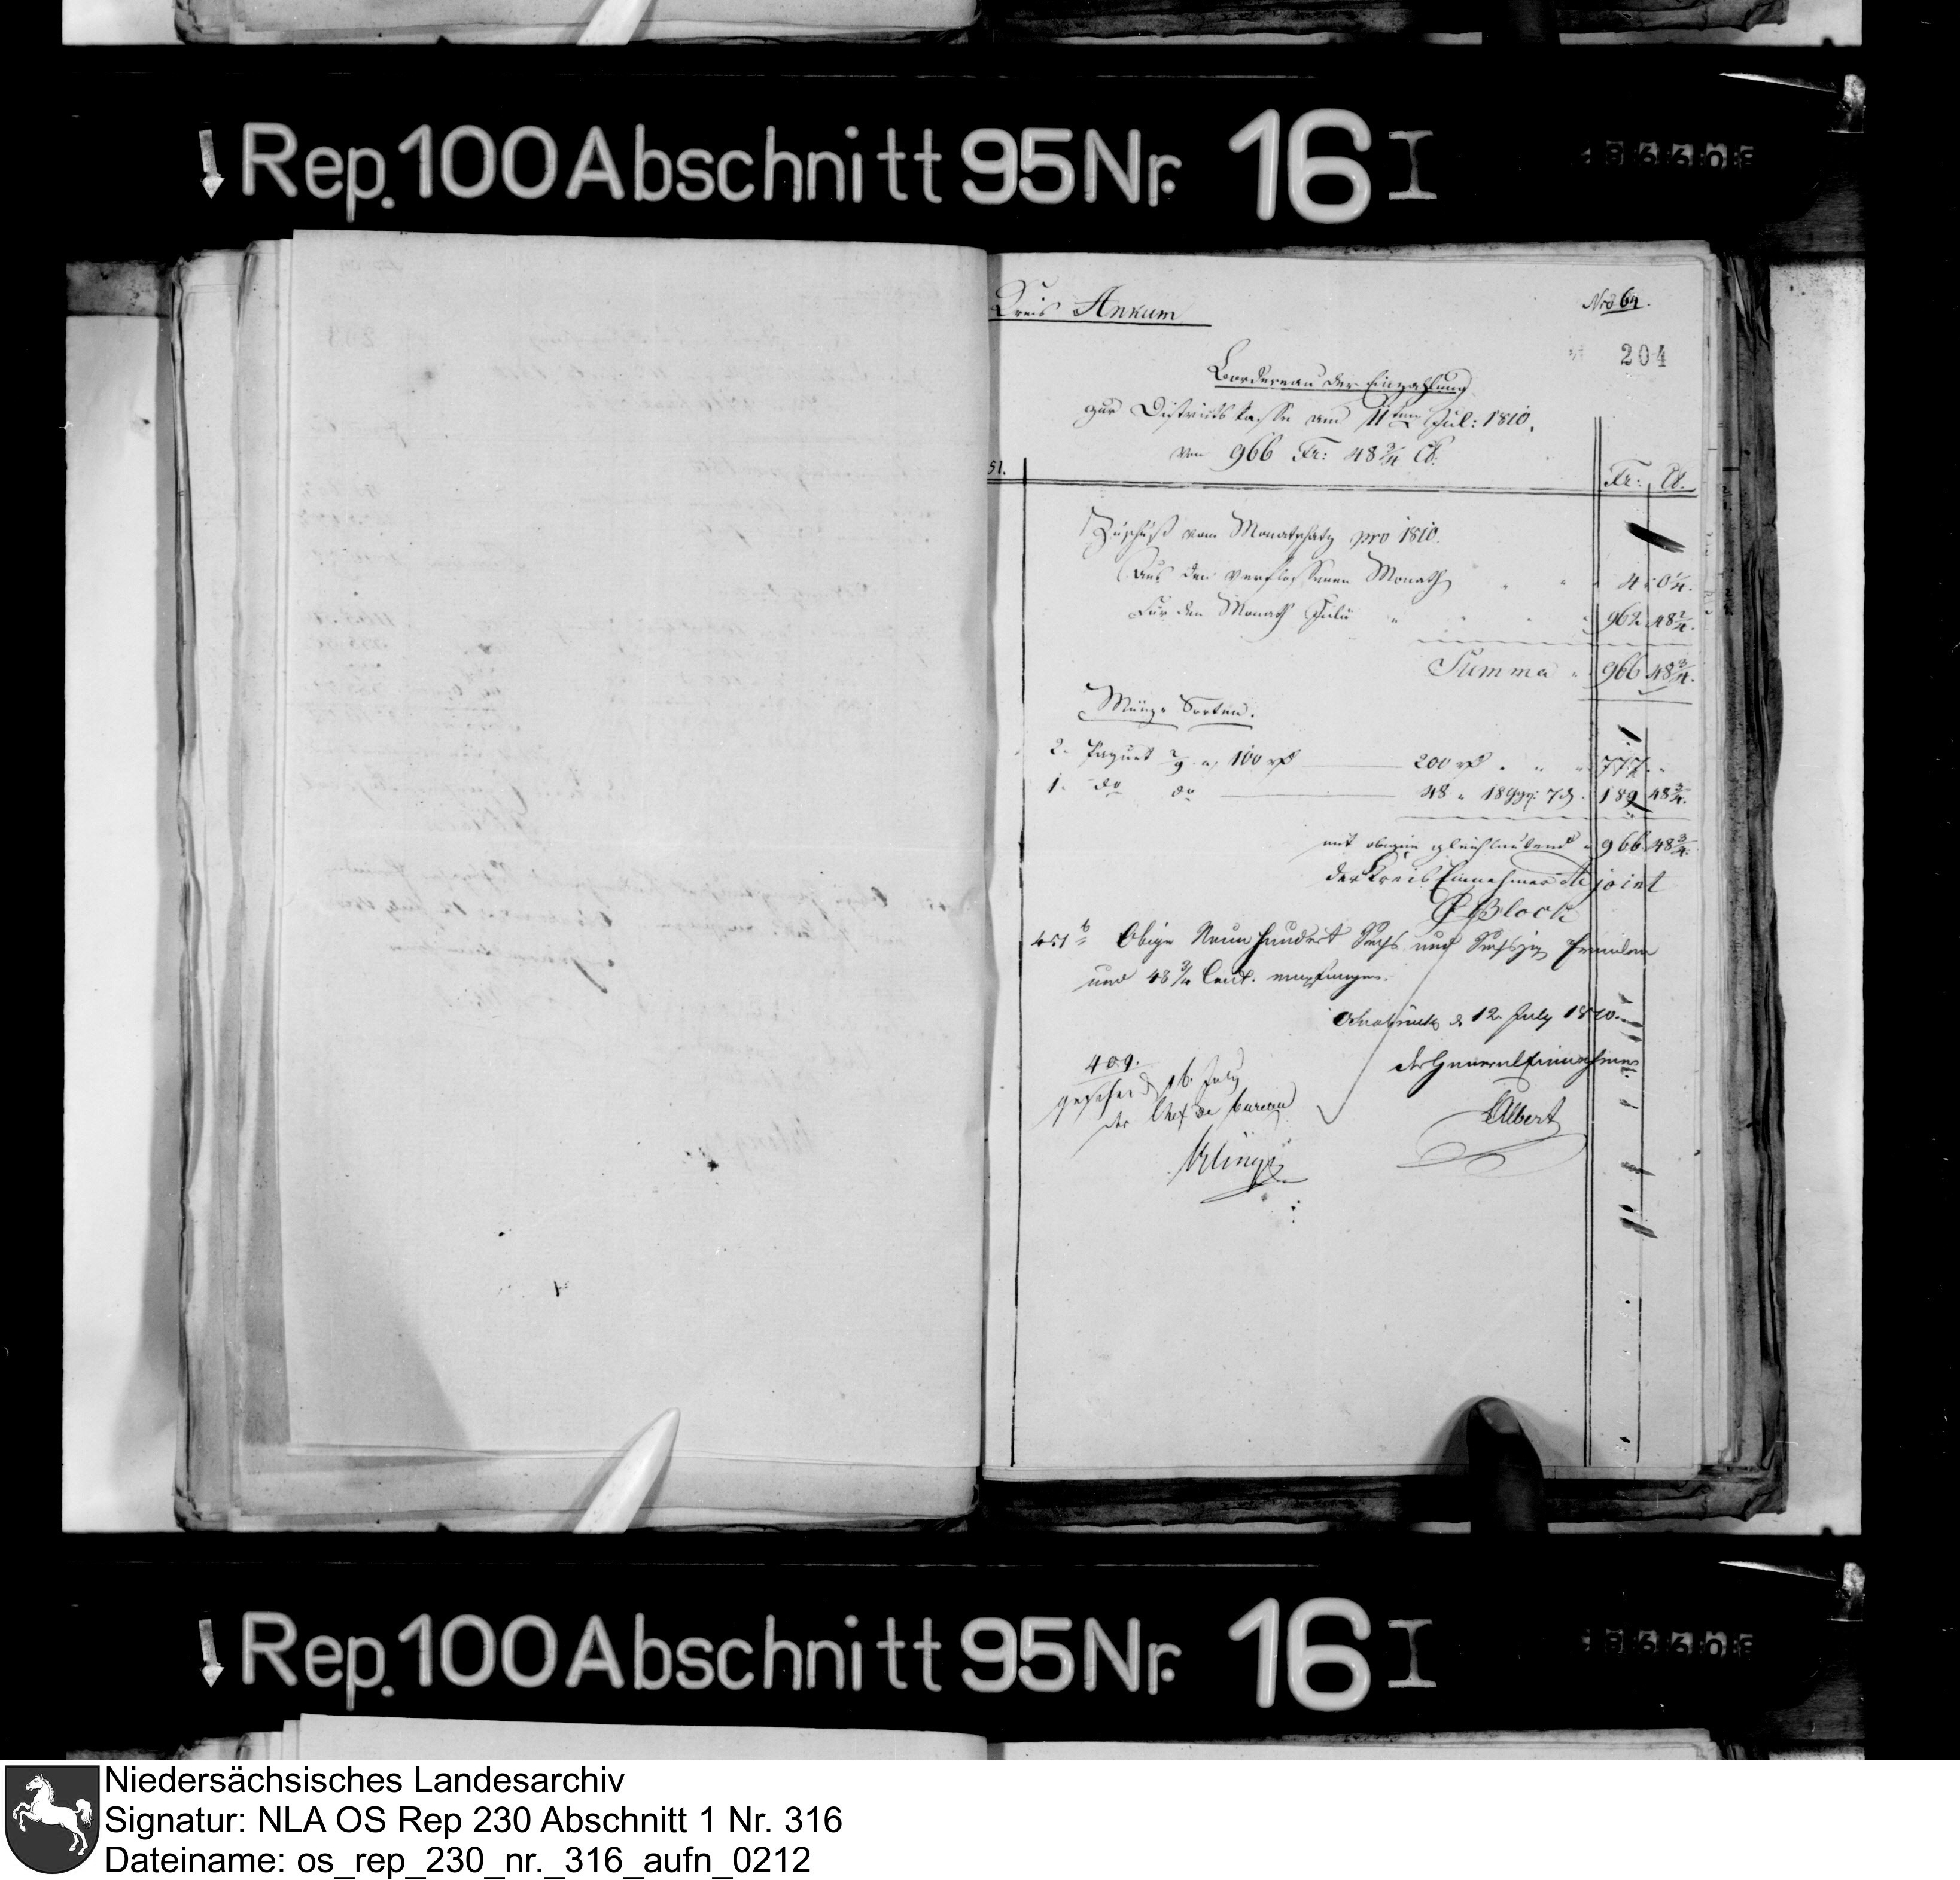 Rep. 100 Abschnitt 95 Nr. 16 I
Kreis Ankum
Nro 64.
204
Bordereau der Einzahlung
zur Districts Kasse am 11ten Jul: 1810.
von 966 Fr: 48 3/4 Ct:
51.
Fr: Ct.
Zuschuß vom Monatschatz pro 1810.
Aus den verflossenen Monath 4 " 0 1/4.
Für den Monath Julii " 962 48 2/4.
Summa " 966 48 3/4.
Münz-Sorten.
2. Paquet 2/9 a 100 rt 200 rt " " 777 "
1. do do 48 " 18 ggr: 7 d. 189 48 3/4.
mit obigen gleichlautend " 966 48 3/4.
der Kreis Einnehmer Adjoint
Block
451 b Obige Neun hundert Sechs und Sechszig Franken
und 48 3/4 Cent. empfangen.
Osnabrück d. 12 July 1810.
der General Einnehmer
Albert
409.
gesehen d. 16. July
der Chef de bureau
Rep. 100 Abschnitt 95 Nr. 16 I
Niedersächsisches Landesarchiv
Signatur: NLA OS Rep 230 Abschnitt 1 Nr. 316
Dateiname: os_rep_230_nr._316_aufn_0212